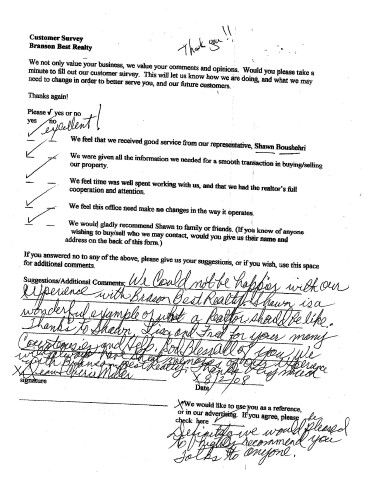 Customer Survey
Branson Best Realty
Thank you!!
We not only value your business, we value your comments and opinions. Would you please take a
minute to fill out our customer survey. This will let us know how we are doing, and what we may
need to change in order to better serve you, and our future customers.
Thanks again!
Please √ yes or no
yes no
excellent!
We feel that we received good service from our representative, Shawn Boushehri
We were given all the information we needed for a smooth transaction in buying/selling
our property.
We feel time was well spent working with us, and that we had the realtor's full
cooperation and attention.
We feel this office need make no changes in the way it operates.
We would gladly recommend Shawn to family or friends. (If you know of anyone
wishing to buy/sell who we may contact, would you give us their name and
address on the back of this form.)
If you answered no to any of the above, please give us your suggestions, or if you wish, use this space
for additional comments.
Suggestions/Additional Comments: We Could not be happier with our
experience with Branson Best Realty. Shawn is a
wonderful example of what a realtor should be like.
Thanks to Shawn, Lisa and Fred for your many
Courtesies and help. God Bless all of you. We
will always have great memories of our experience
with Branson Best Realty. Thank
X
signature
X 8/2/08
Date
X We would like to use you as a reference,
or in our advertising. If you agree, please
check here
Definitely we would be pleased
to highly recommend you
folks to anyone.